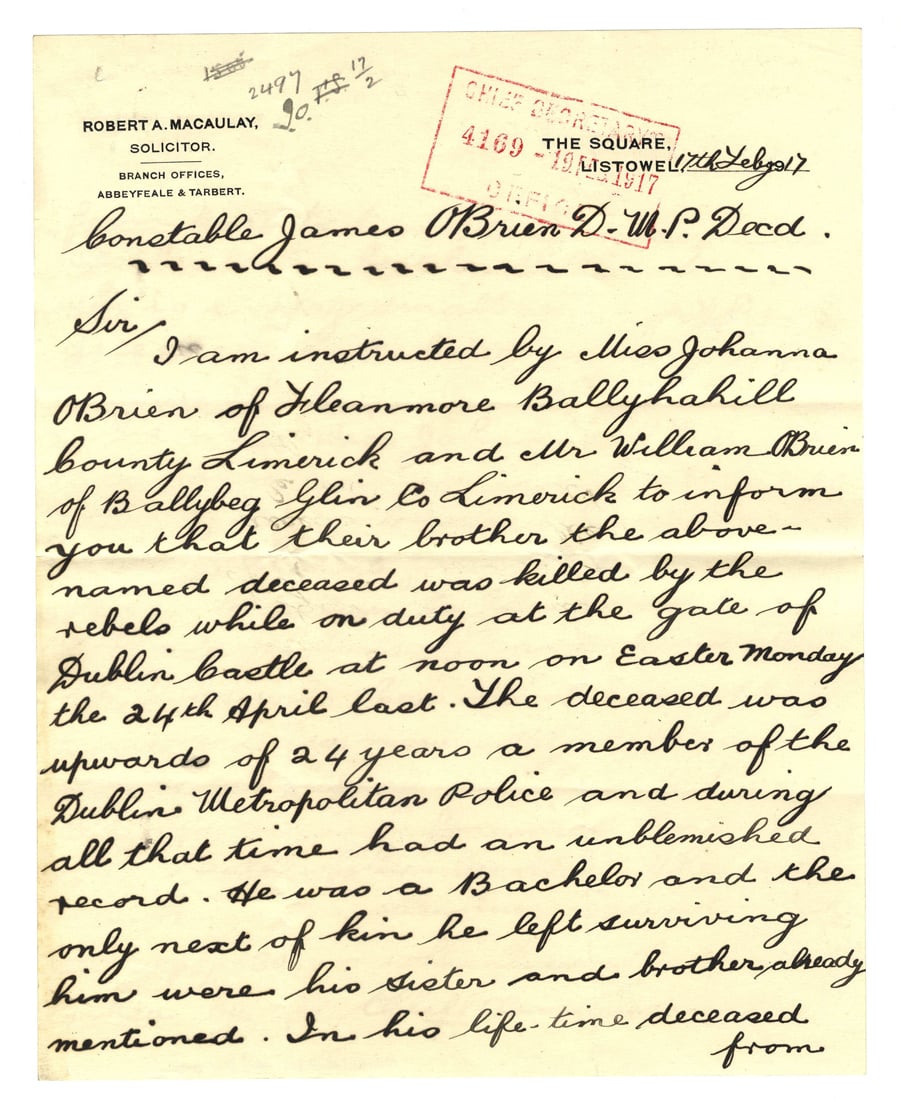 2497
17/2
ROBERT A. MACAULAY,
SOLICITOR.
BRANCH OFFICES,
ABBEYFEALE & TARBERT.
CHIEF SECRETARY'S
4169 - 19 FEB 1917
OFFICE
THE SQUARE,
LISTOWEL, 17th Feby 1917
Constable James OBrien D.M.P. Decd.
Sir/
I am instructed by Miss Johanna
OBrien of Fleanmore Ballyhahill
County Limerick and Mr William OBrien
of Ballybeg Glin Co Limerick to inform
you that their brother the above-
named deceased was killed by the
rebels while on duty at the gate of
Dublin Castle at noon on Easter Monday
the 24th April last. The deceased was
upwards of 24 years a member of the
Dublin Metropolitan Police and during
all that time had an unblemished
record. He was a Bachelor and the
only next of kin he left surviving
him were his sister and brother already
mentioned. In his life-time deceased
from